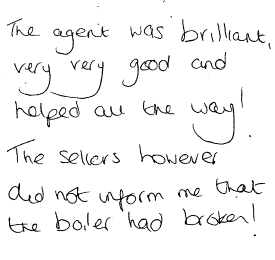 The agent was brilliant,
very very good and
helped all the way!
The sellers however
did not inform me that
the boiler had broken!